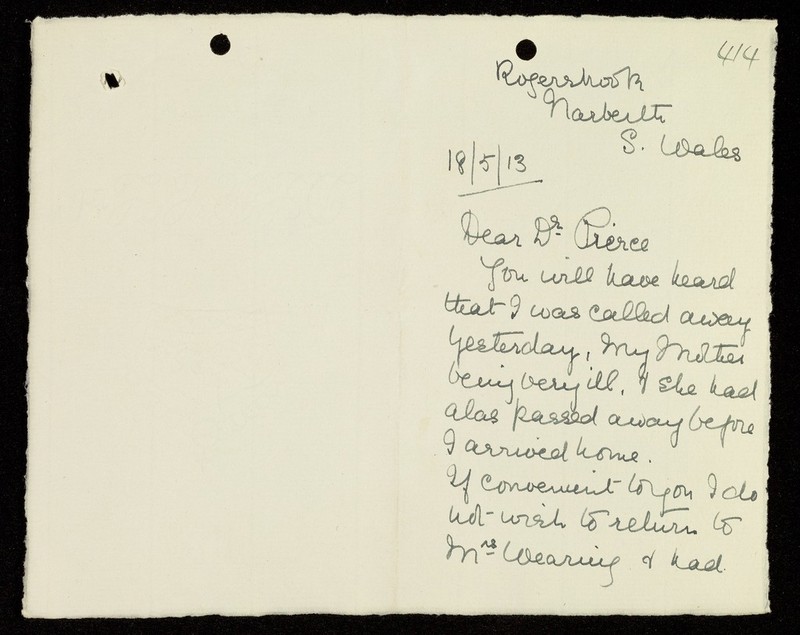 414
Rogersbrook
Narberth
S. Wales
18/5/13
Dear Dr. Pierce
You will have heard
that I was called away
yesterday, my Mother
being very ill, & she had
alas passed away before
I arrived home.
If convenient to you I do
not wish to return to
Mrs Wearing & had